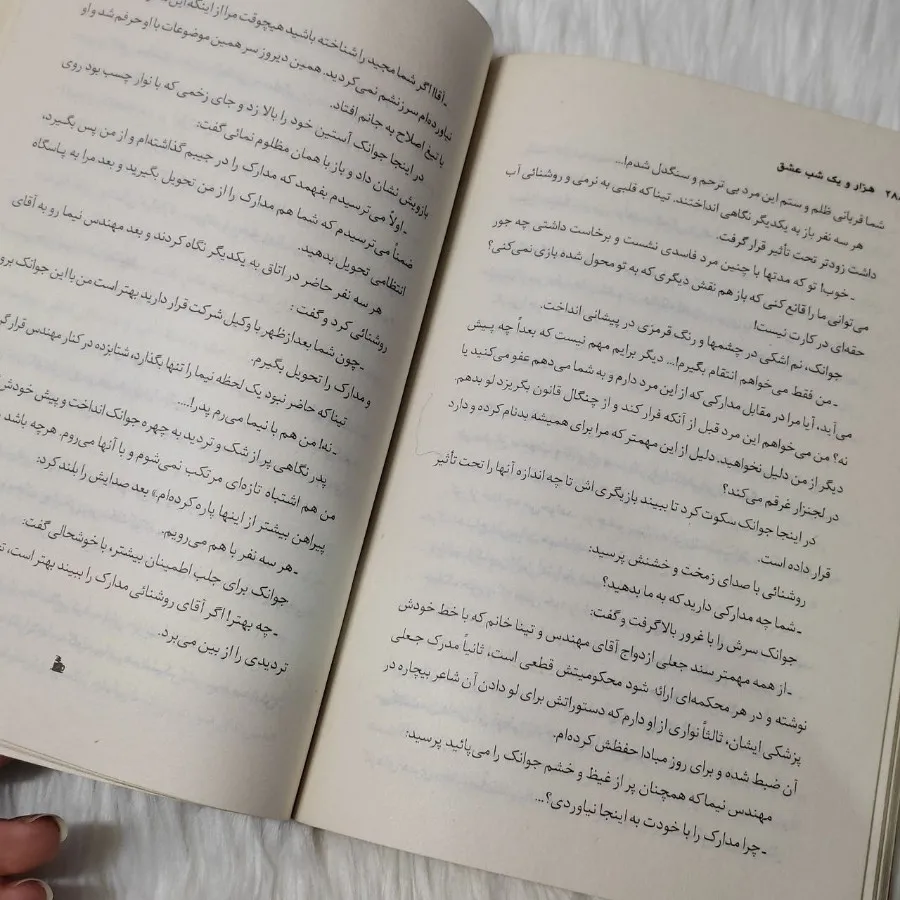 هزار و یک شب عشق
شما قربانی ظلم و ستم این مرد بی ترحم و سنگدل شدم!...
هر سه نفر باز به یکدیگر نگاهی انداختند. تینا که قلبی به نرمی و روشنائی آب
داشت زودتر تحت تأثیر قرار گرفت.
ـ خوب! تو که مدتها با چنین مرد فاسدی نشست و برخاست داشتی چه جور
می‌توانی ما را قانع کنی که باز هم نقش دیگری که به تو محول شده بازی نمی‌کنی؟
حقه‌ای در کارت نیست!
جوانک، نم اشکی در چشمها و رنگ قرمزی در پیشانی انداخت.
ـ من فقط می خواهم انتقام بگیرم!... دیگر برایم مهم نیست که بعداً چه پیش
می‌آید، آیا مرا در مقابل مدارکی که از این مرد دارم و به شما می‌دهم عفو می‌کنید یا
نه؟ من می‌خواهم این مرد قبل از آنکه فرار کند و از چنگال قانون بگریزد لو بدهم.
دیگر از من دلیل نخواهید. دلیل از این مهمتر که مرا برای همیشه بدنام کرده و دارد
در لجنزار غرقم می‌کند؟
در اینجا جوانک سکوت کرد تا ببیند بازیگری اش تا چه اندازه آنها را تحت تأثیر
قرار داده است.
روشنائی با صدای زمخت و خشنش پرسید:
ـ شما چه مدارکی دارید که به ما بدهید؟
جوانک سرش را با غرور بالا گرفت و گفت:
ـ از همه مهمتر سند جعلی ازدواج آقای مهندس و تینا خانم که با خط خودش
نوشته و در هر محکمه‌ای ارائه شود محکومیتش قطعی است، ثانیاً مدرک جعلی
پزشکی ایشان، ثالثاً نواری از او دارم که دستوراتش برای لو دادن آن شاعر بیچاره در
آن ضبط شده و برای روز مبادا حفظش کرده‌ام.
مهندس نیما که همچنان پر از غیظ و خشم جوانک را می‌پائید پرسید:
ـ چرا مدارک را با خودت به اینجا نیاوردی؟...
ـ آقا! اگر شما مجید را شناخته باشید هیچوقت مرا از اینکه این
نیاورده‌ام سرزنشم نمی‌کردید. همین دیروز سر همین موضوعات با او حرفم شد و او
با تیغ اصلاح به جانم افتاد.
در اینجا جوانک آستین خود را بالا زد و جای زخمی که با نوار چسب بود روی
بازویش نشان داد و باز با همان مظلوم نمائی گفت:
ـ اولاً می‌ترسیدم بفهمد که مدارک را در جیبم گذاشته‌ام و از من پس بگیرد،
ضمناً می‌ترسیدم که شما هم مدارک را از من تحویل بگیرید و بعد مرا به پاسگاه
انتظامی تحویل بدهید.
هر سه نفر حاضر در اتاق به یکدیگر نگاه کردند و بعد مهندس نیما رو به آقای
روشنائی کرد و گفت:
ـ چون شما بعدازظهر با وکیل شرکت قرار دارید بهتر است من با این جوانک
و مدارک را تحویل بگیرم.
تینا که حاضر نبود یک لحظه نیما را تنها بگذارد، شتابزده در کنار مهندس قرار
ـ نه! من هم با نیما می‌رم پدر!...
پدر نگاهی پر از شک و تردید به چهره جوانک انداخت و پیش خودش
من هم اشتباه تازه‌ای مرتکب نمی‌شوم و با آنها می‌روم. هرچه باشد
پیراهن بیشتر از اینها پاره کرده‌ام» بعد صدایش را بلند کرد:
ـ هر سه نفر با هم می‌رویم.
جوانک برای جلب اطمینان بیشتر، با خوشحالی گفت:
ـ چه بهتر! اگر آقای روشنائی مدارک را ببیند بهتر است،
تردیدی را از بین می‌برد.